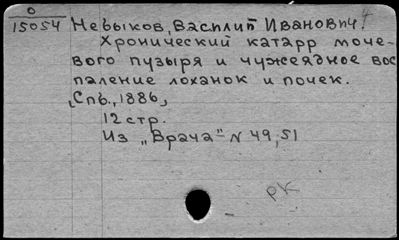 0
15054 Невыков, Василий Иванович.
Хронический катарр моче-
вого пузыря и чужеядное вос
паление лоханок и почек.
[Спб., 1886]
12 стр.
Из „Врача" N 49, 51
РК